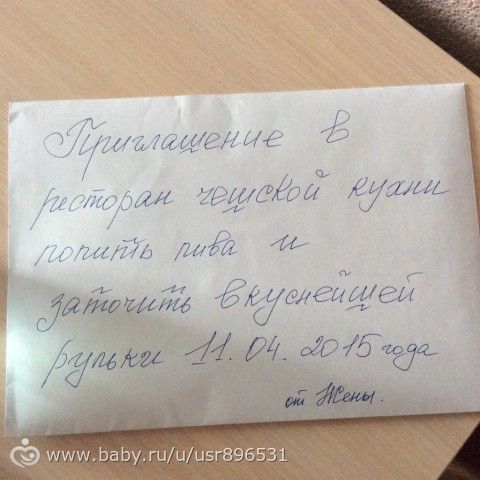 Приглашение в
ресторан чешской кухни
попить пива и
заточить вкуснейшей
рульки 11.04.2015 года
от Жены.
www.baby.ru/u/usr896531